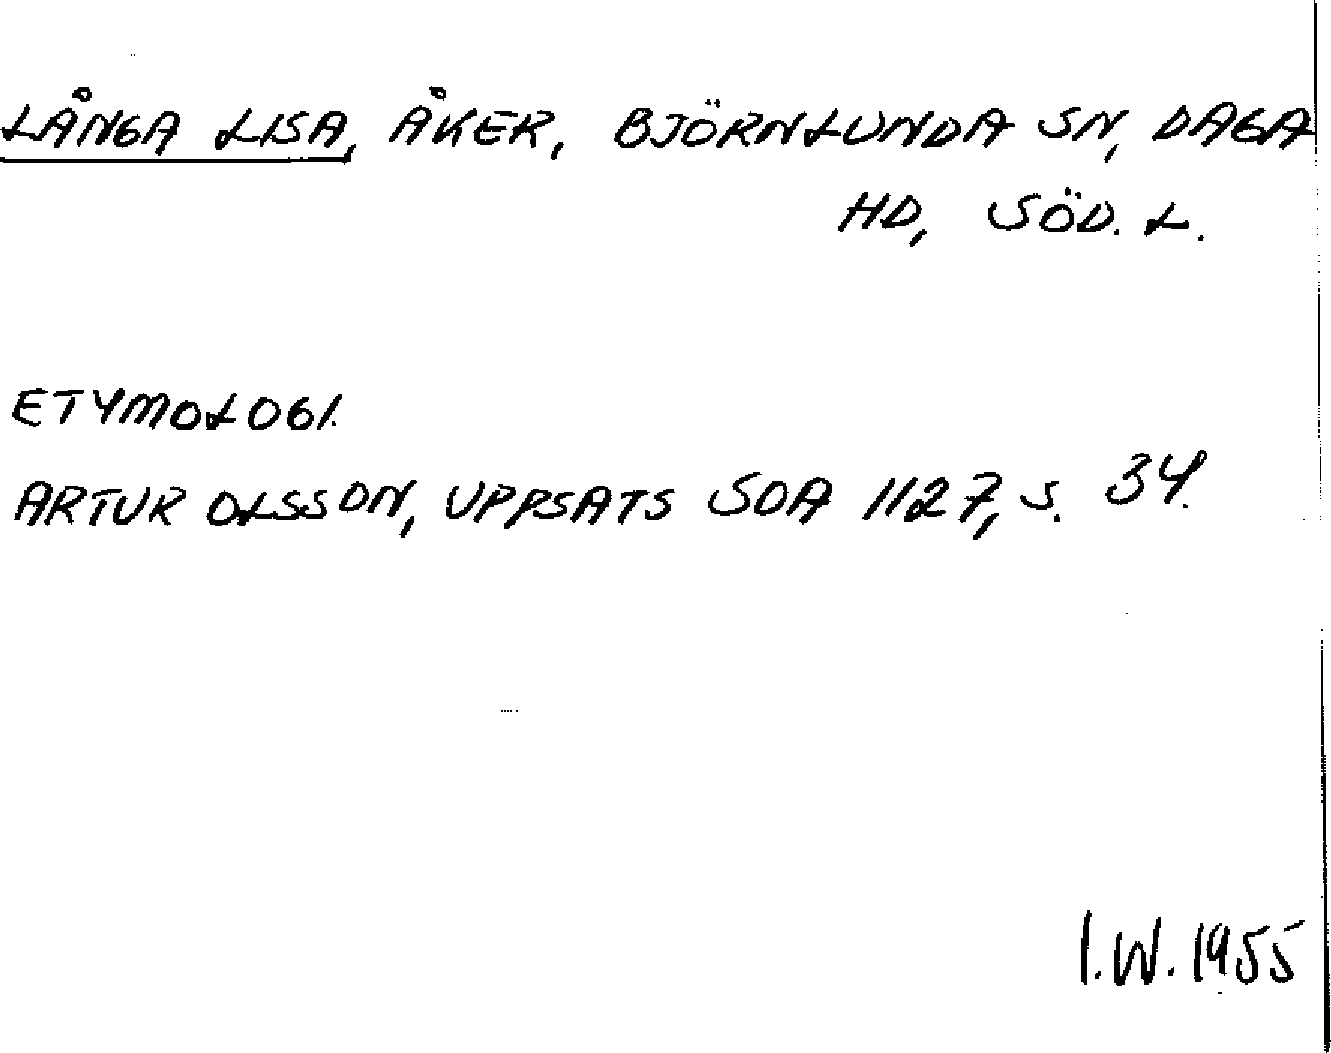 LÅNGA LISA, ÅKER, BJÖRNLUNDA SN, DAGA
HD, SÖD. L.
ETYMOLOGI.
ARTUR OLSSON, UPPSATS SOA 1127, S. 34.
I.W. 1955